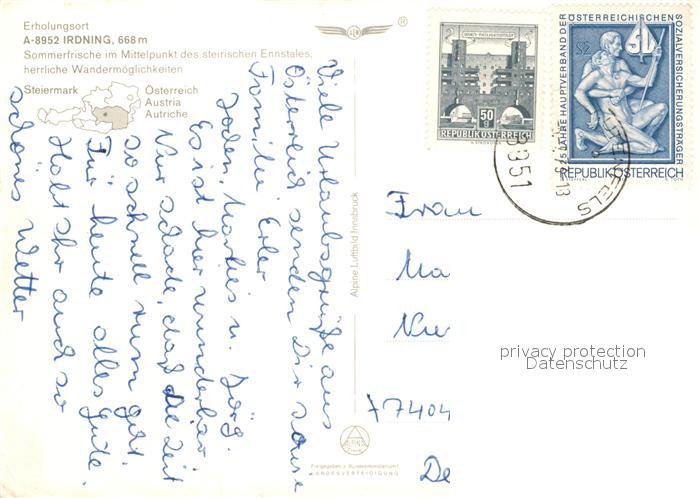 Erholungsort
A-8952 IRDNING, 668 m
Sommerfrische im Mittelpunkt des steirischen Ennstales,
herrliche Wandermöglichkeiten
Steiermark
Österreich
Austria
Autriche
Viele Urlaubsgrüße aus
Österreich senden Dir
Familie Erler
Marlies u. Jörg.
Es ist hier wunderbar
Nur schade, daß die Zeit
so schnell rum geht.
Für heute alles Gute.
Habt Ihr auch so
schönes Wetter
Alpine Luftbild Innsbruck
Freigegeben v. Bundesministerium f.
LANDESVERTEIDIGUNG
®
50 g
REPUBLIK ÖSTERREICH
25 JAHRE HAUPTVERBAND DER
ÖSTERREICHISCHEN
SOZIALVERSICHERUNGSTRÄGER
S2
REPUBLIK ÖSTERREICH
8951
Frau
Ma
7404
De
privacy protection
Datenschutz